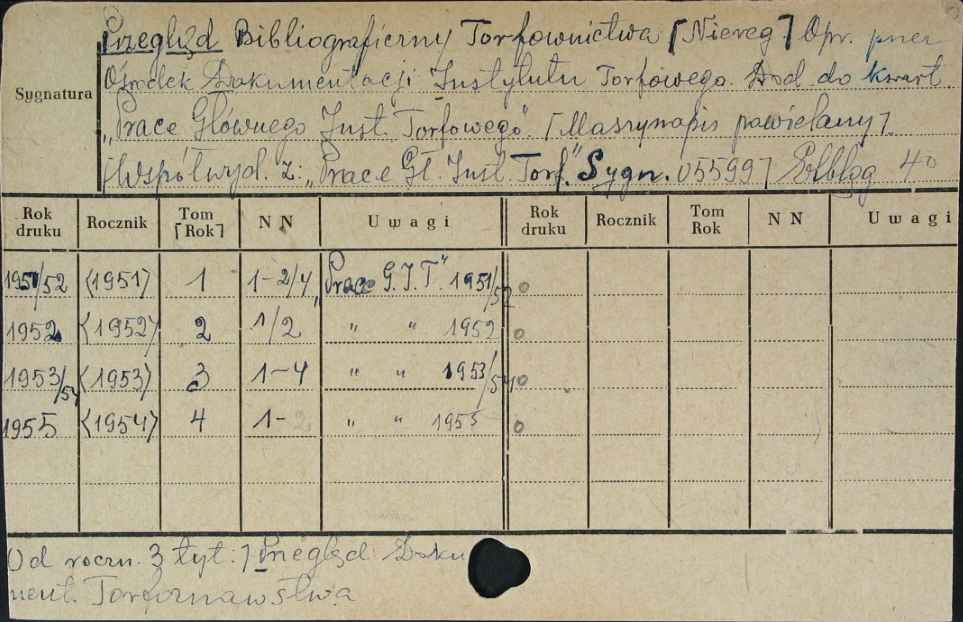 Przegląd Bibliograficzny Torfownictwa [Niereg] Opr. przez
Ośrodek Dokumentacji Instytutu Torfowego. Dod do kwart.
Sygnatura
„Prace Głównego Inst. Torfowego". [Maszynopis powielany].
[Współwyd. z: „Prace Gł. Inst. Torf." Sygn. 05599] 4°
Rok druku Rocznik Tom [Rok] NN Uwagi Rok druku Rocznik Tom Rok NN Uwagi
1951/52 <1951> 1 1-2/4 „Prace G.I.T" 1951/52 o
1952 <1952> 2 1/2 " " 1952 o
1953/54 <1953> 3 1-4 " " 1953/54 o
1955 <1954> 4 1-2 " " 1955 o
Od roczn. 3 tyt: ] Przegląd Doku
ment. Torfoznawstwa